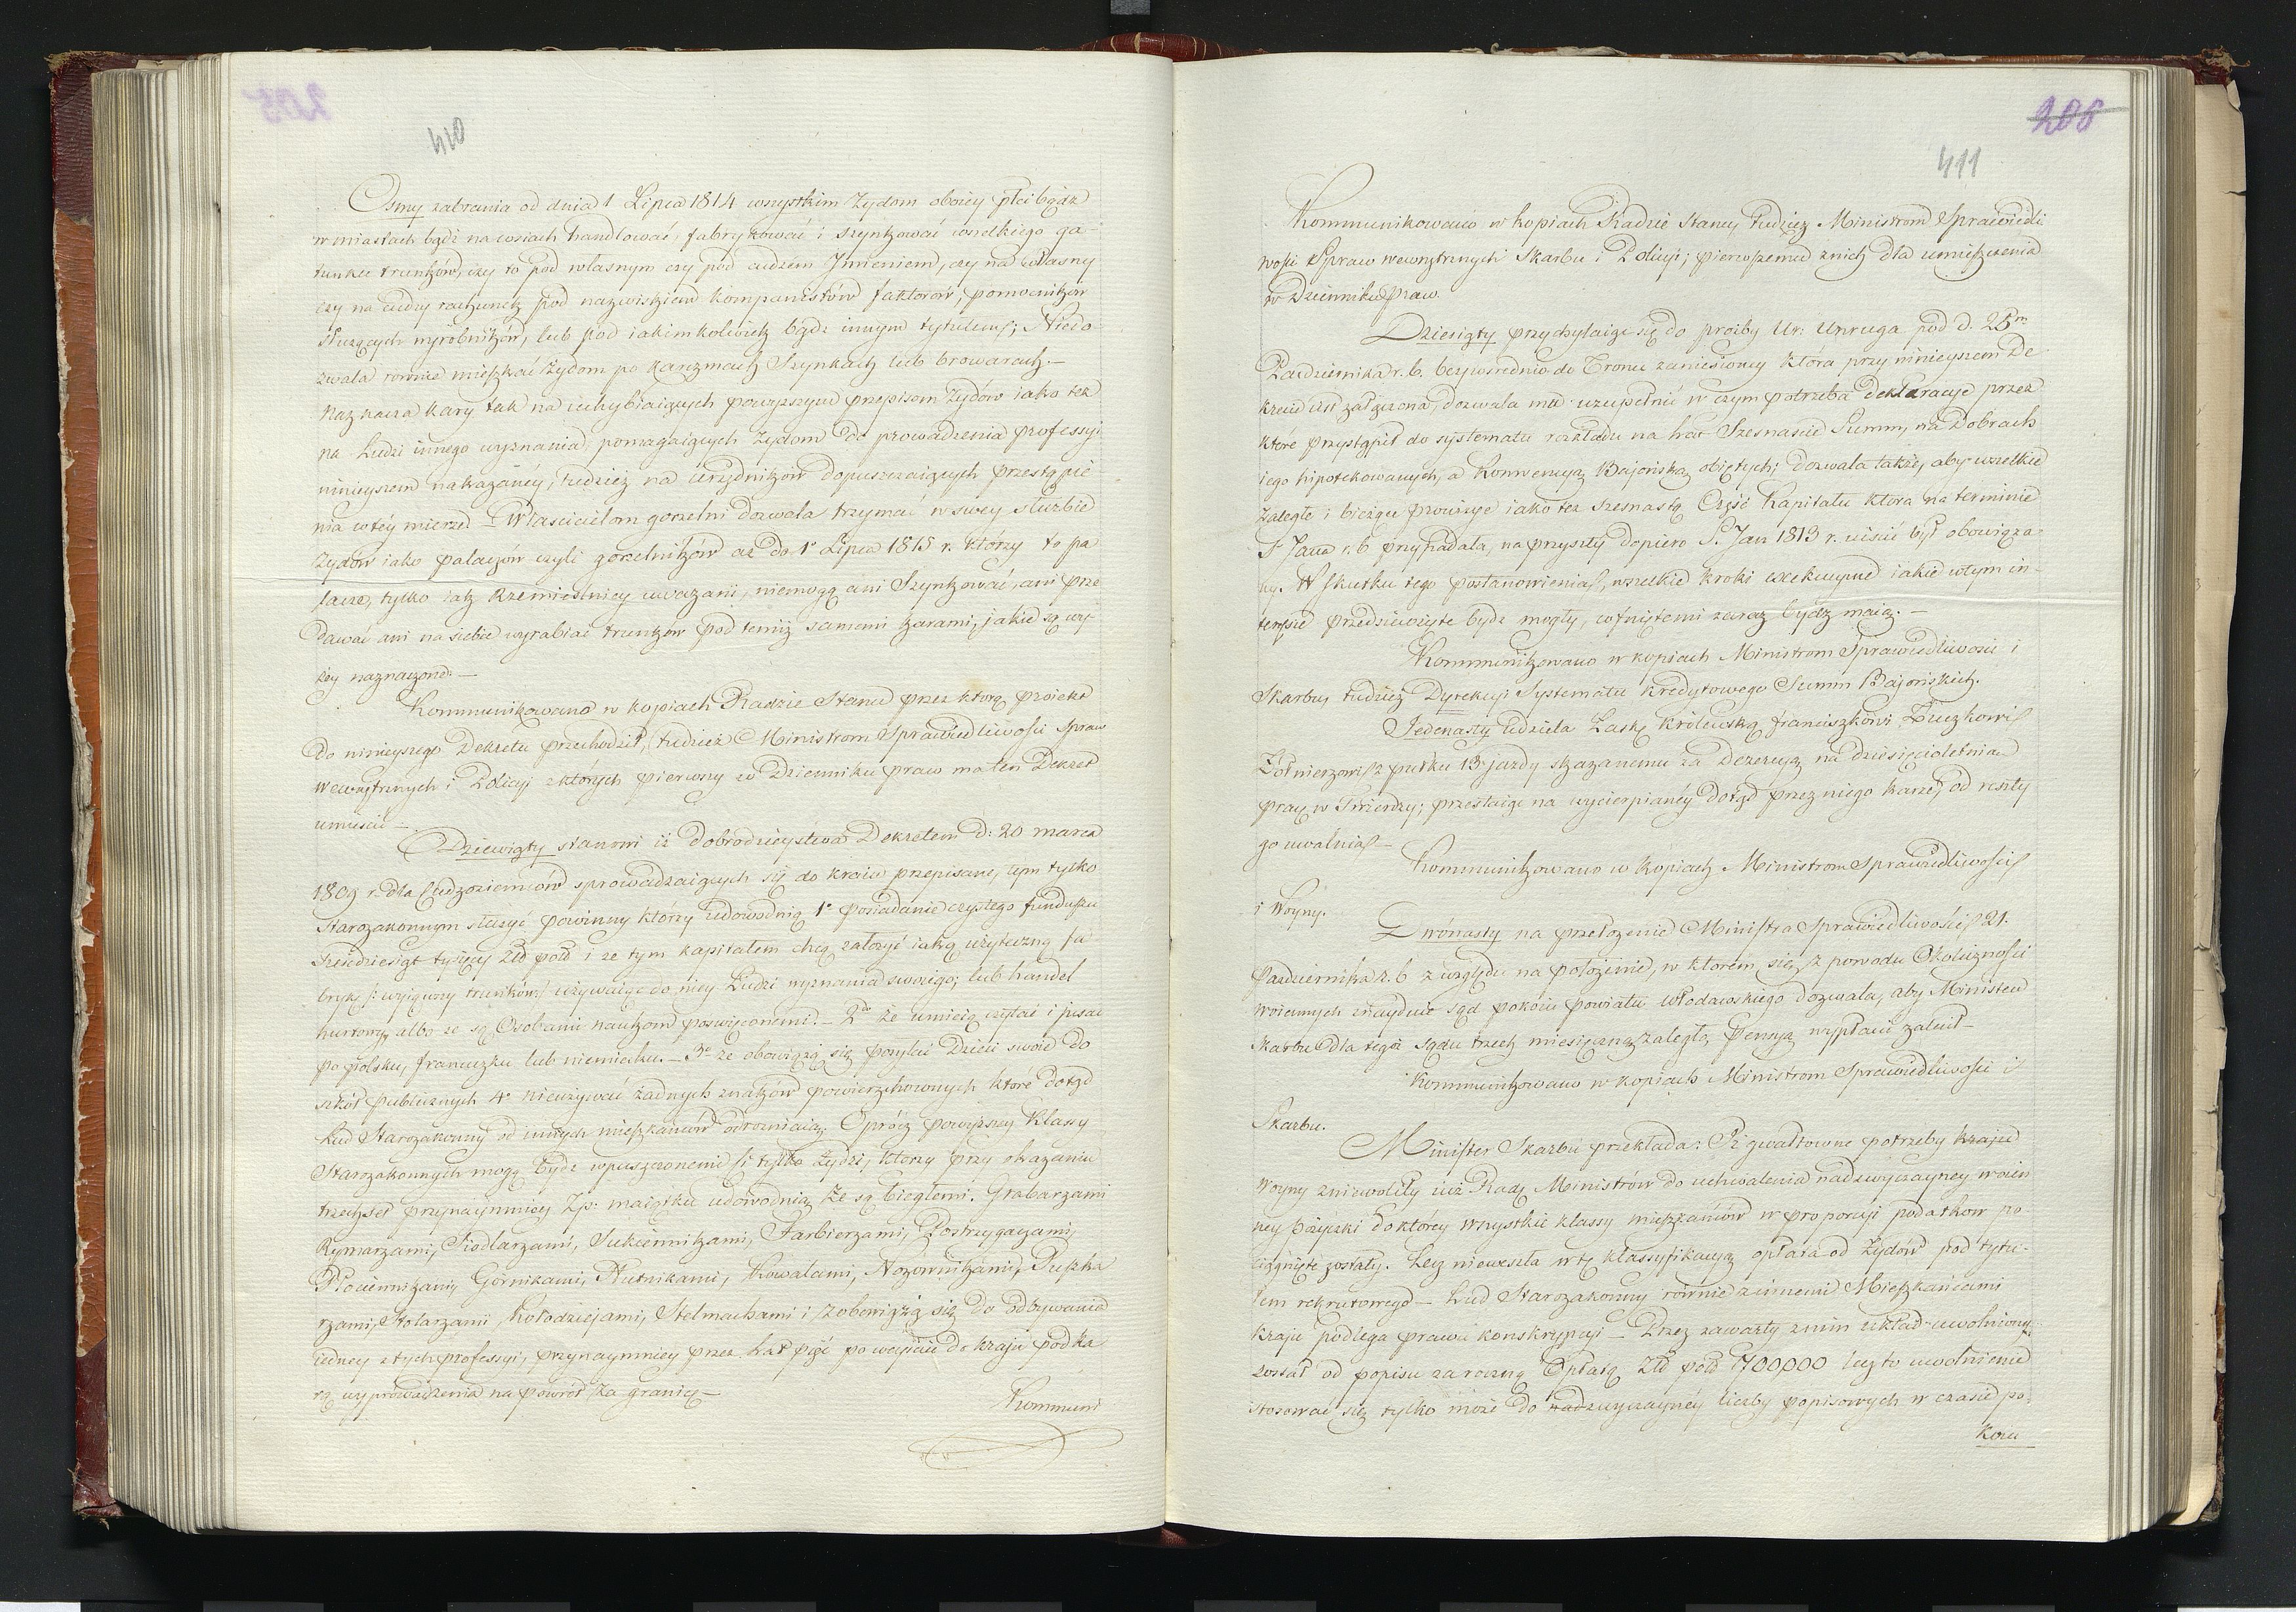 410
Osmy zabrania od dnia 1 Lipca 1814 wszystkim Żydom oboiey płci bądz
w miastach bądź na wsiach handlować, fabrykować i szynkować wszelkiego ga-
tunku trunków, czy to pod własnym czy pod cudzem Jmieniem, czy na własny
czy na cudzy rachunek pod nazwiskiem kompanistów faktorów, pomocników
służących wyrobników, lub pod iakimkolwiek bądz innym tytułem; Niedo-
zwala rownie mieszkać Żydom po karczmach Szynkach lub browarach.—
Naznacza kary tak na uchybiaiących powyższym przepisom Żydów iako też
na Ludzi innego wyznania pomagaiących Żydom do prowadzenia professyi
ninieyszem nakazanéy, tudzież na Urzędników dopuszczaiących przestąpie
nia w téy mierze — Właścicielom gorzelni dozwala trzymać w swey służbie
Żydów iako palaczów czyli gorzelników aż do 1º Lipca 1815 r. którzy to pa
lacze, tylko iak Rzemieślnicy uważani, niemogą ani Szynkować, ani prze
dawać ani na siebie wyrabiać trunków pod temiż samemi karami, jakie są wy-
żey naznaczone.—
Kommunikowano w kopiach Radzie Stanu przez którą proiekt
do ninieyszego Dekretu przechodził, tudzież Ministrom Sprawiedliwości Spraw
Wewnętrznych i Policyi z których pierwszy w Dzienniku praw ma ten Dekret
umieścić —
Dziewiąty stanowi iż dobrodzieystwa Dekretem d: 20 marca
1809 r. dla Cudzoziemców sprowadzaiących się do kraiu przepisane, tym tylko
Starozakonnym służyć powinny którzy udowodnią 1º posiadanie czystego funduszu
sześćdziesiąt tysięcy Złł poll i ze tym kapitałem chcą założyć iaką użyteczną fa-
brykę /: wyiąwszy trunków :/ używaiąc do niey Ludzi wyznania swoiego, lub handel
hurtowy, albo że są Osobami naukom poswięconemi. — 2do że umieią czytać i pisać
po polsku, francuzku lub niemiecku. — 3º że obowiążą się posyłać Dzieci swoie do
szkół publicznych 4º nieużywać żadnych znaków powierzchownych które dotąd
Lud Starozakonny od innych mieszkańców odrozniaią. Oprócz powyższey Klassy
Starozakonnych mogą bydź wpuszczonemi ci tylko Żydzi, którzy przy okazaniu
trzechset przynaymniey Złp: maiątku udowodnią że są biegłemi Grabarzami
Rymarzami, Siodlarzami, Sukiennikami, Farbierzami, Postrzygaczami,
Płóciennikami, Górnikami, Hutnikami, Kowalami, Nozownikami, Puszka
rzami, Stolarzami, Kołodziejami, Stelmachami i zobowiążą się do odbywania
iedney z tych professyi, przynaymniey przez Lat pięć po weyściu do kraju pod ka
rą wyprowadzenia na powrót za granicę —
Kommuni
206
411
Kommunikowano w kopiach Radzie Stanu, tudzież Ministrom Sprawiedli
wości Spraw wewnętrznych Skarbu i Policyi; pierwszemu z nich dla umieszczenia
w Dzienniku praw.
Dziesiąty przychylaiąc się do prośby Ur: Unruga pod d. 25m
Października r. b. bezpośrednio do Tronu zaniesioney która przy ninieyszem De
krecie iest załączona, dozwala mu uzupełnić w czym potrzeba deklaracyę przez
które przystąpił do systematu rozkładu na lat Szesnaście Summ, na Dobrach
iego hipotekowanych, a Konwencyą Bajońską obiętych; dozwala także, aby wszelkie
zaległe i bieżące prowizye iako też szesnastą Część Kapitału która na terminie
S. Jana r. b. przypadała, na przyszły dopiero S. Jan 1813 r. uiścić był obowiąza-
ny. W skutku tego postanowienia, wszelkie kroki exekucyine iakie w tym in-
teressie przedsięwzięte bydź mogły, cofniętemi zaraz bydź maią. —
Kommunikowano w kopiach Ministrom Sprawiedliwości i
Skarbu, tudzież Dyrekcyi Systematu kredytowego Summ Bajońskich.
Jedenasty udziela Łaskę królewską franciszkowi
Żołnierzowi z pułku 13º jazdy skazanemu za dezercyą na dziesięcioletnią
pracę w Twierdzy; przestaiąc na wycierpianéy dotąd przez niego karze, od reszty
go uwalnia —
Kommunikowano w kopiach Ministrom Sprawiedliwości
i Woyny.
Dwónasty na przełożenie Ministra Sprawiedliwości 21.
Października r. b. z względu na położenie, w ktorem się z powodu Okoliczności
woiennych znayduie sąd pokoiu powiatu włodawskiego dozwala, aby Minister
Skarbu dla tegoż sądu trzech miesięczną zaległą Pensyą wypłacić zalecił —
Kommunikowano w kopiach Ministrom Sprawiedliwości i
Skarbu.
Minister Skarbu przekłada: Iż gwałtowne potrzeby kraju
Woyny zniewoliły iuż Radę Ministrów do uchwalenia nadzwyczayney woien
ney pożyczki do którey wszystkie klassy mieszkańców w proporcyi podatkow po-
ciągnięte zostały. Lecz nieweszła w tę klassyfikacyą opłata od Żydów pod tytu-
łem rekrutowego — Lud Starozakonny równie z innemi Mieszkańcami
Kraju podlega prawu konskrypcyi — Przez zawarty z nim układ uwolniony
został od popisu za roczną Opłatą Złł poll 700000 lecz to uwolnienie
stosować się tylko może do nadzwyczaynéy liczby popisowych w czasie po-
koiu